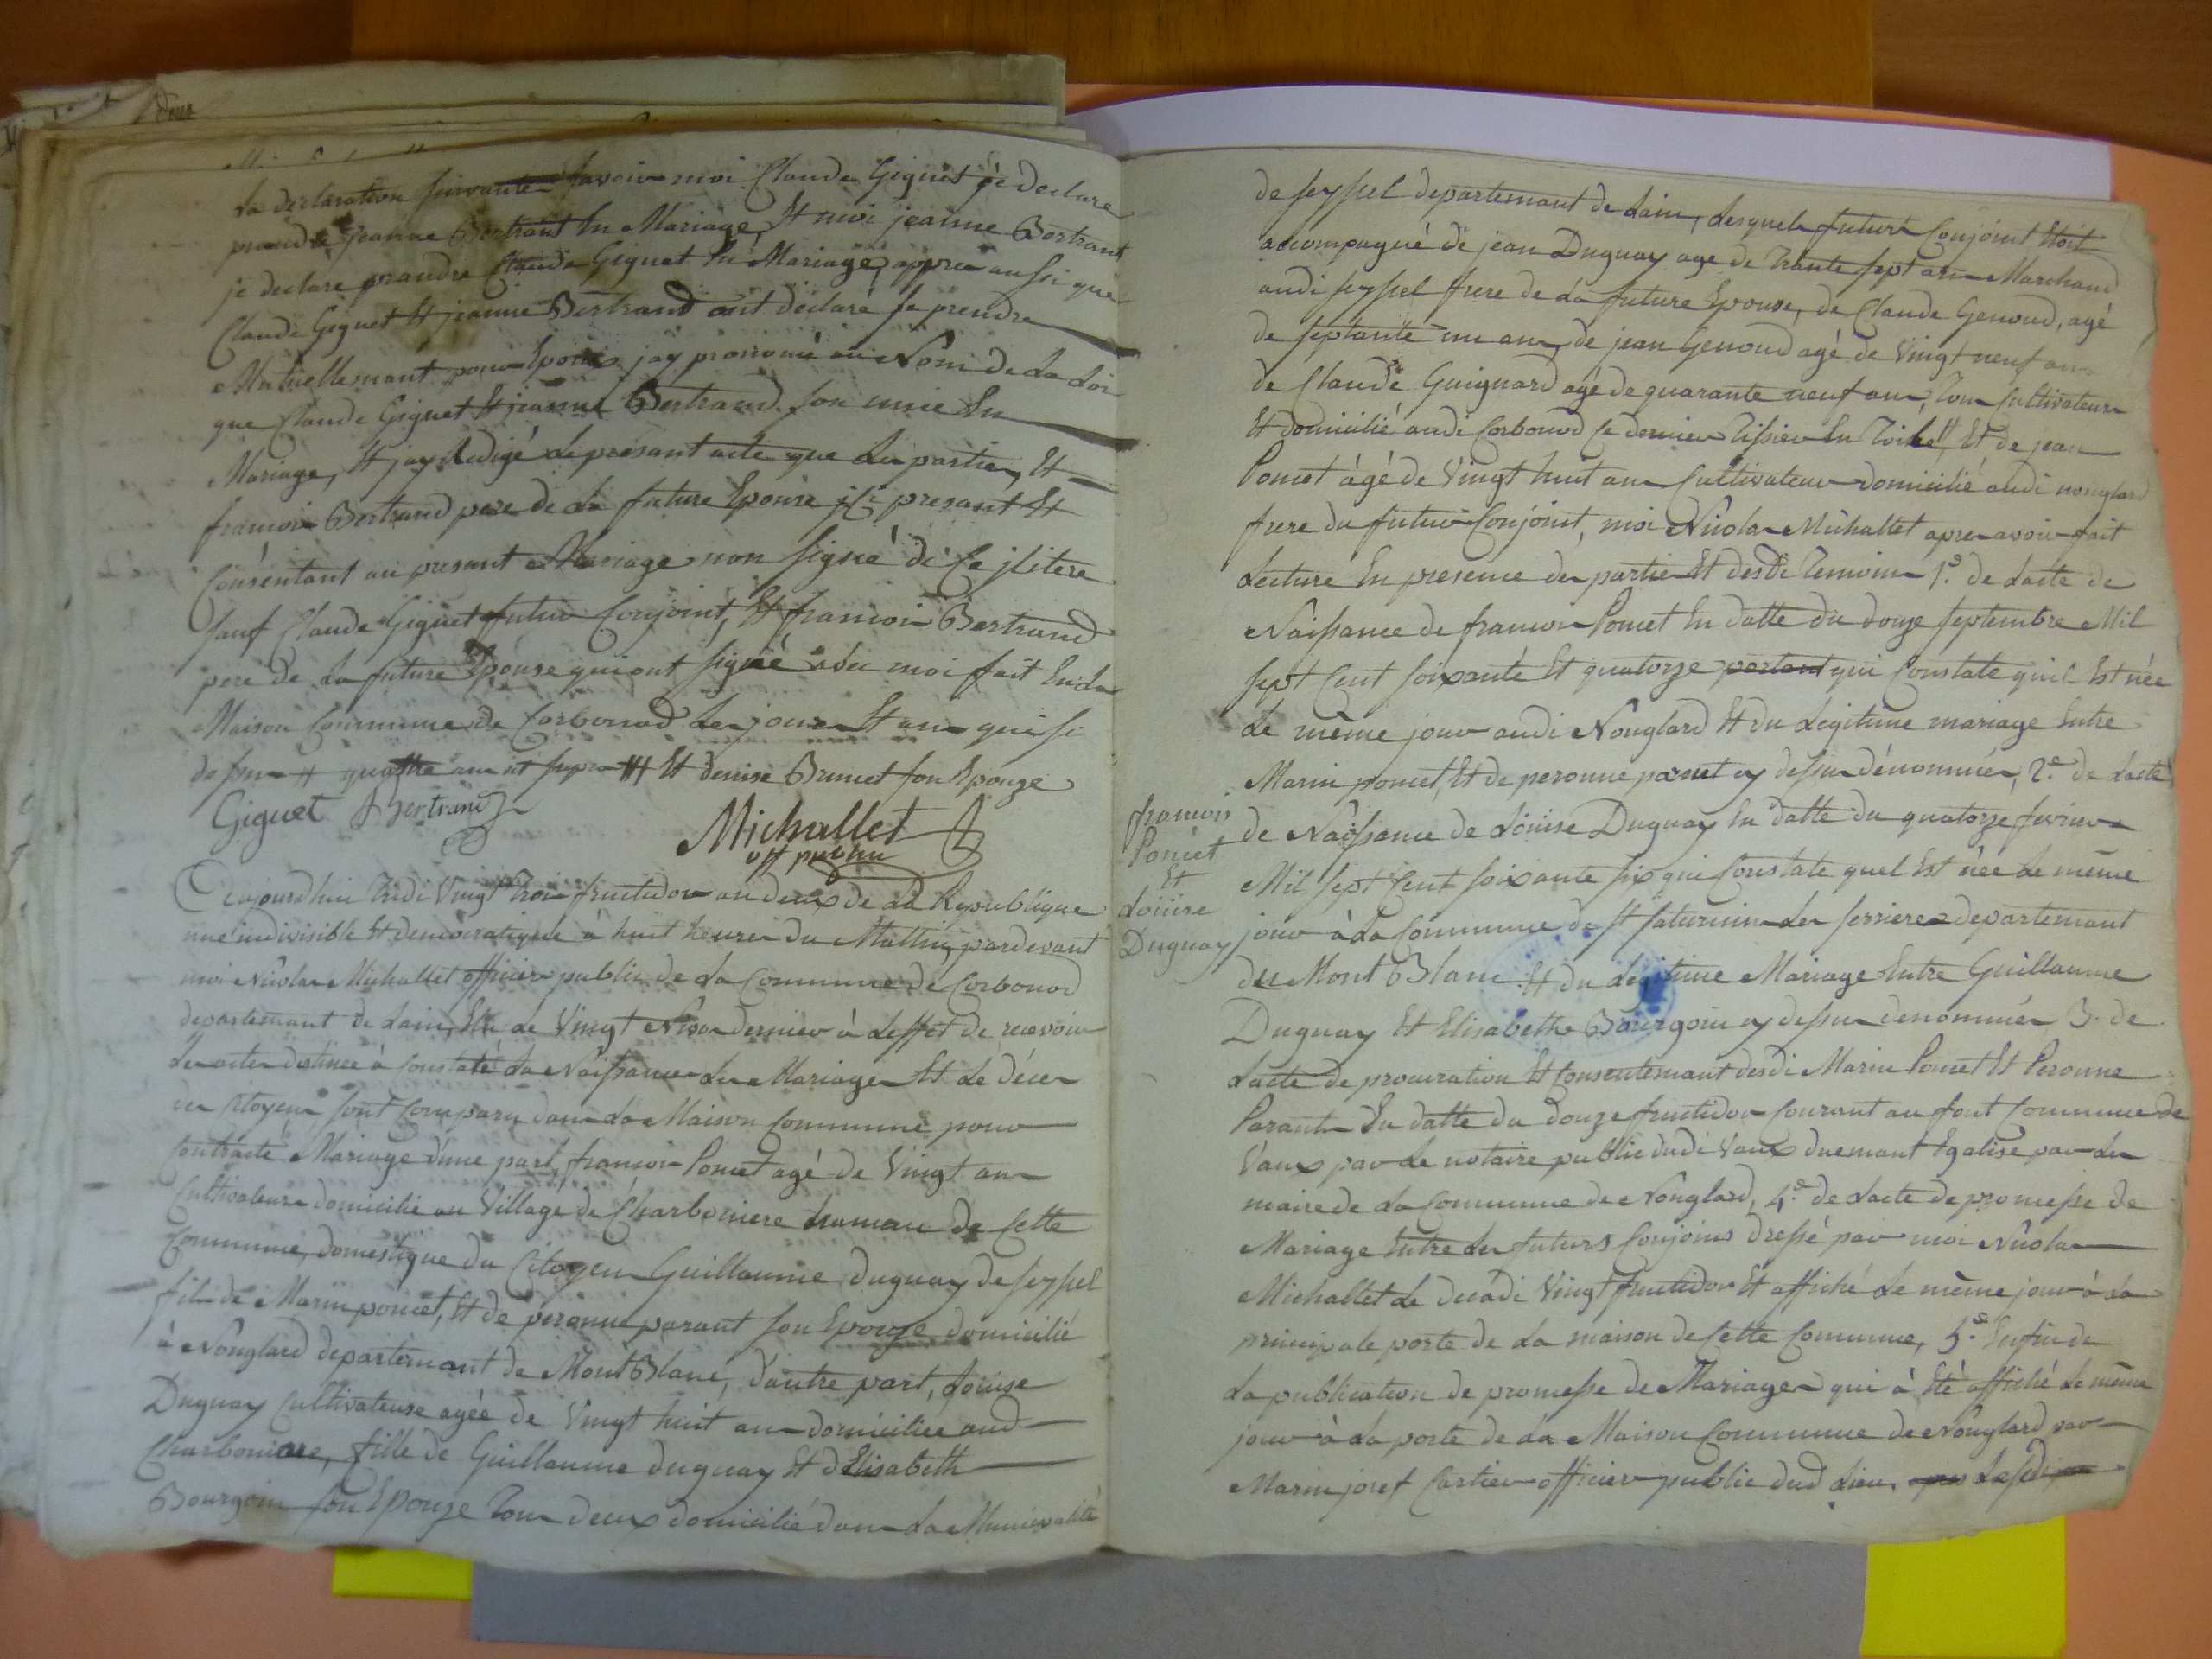 La declaration suivante savoir moi Claude Giguet je declare
prandre jeanne Bertrant En Mariage, Et moi jeanne Bertrant
je declare prandre Claude Giguet En Mariage, appres aussi que
Claude Giguet Et jeanne Bertrand ont déclaré se prendre
Mutuellemant pour Epoux, jay prononcé au Nom de La Loi
que Claude Giguet Et jeanne Bertrand son unie En
Mariage, Et jay Redigé Le presant acte que Les parties, Et
francois Bertrand pere de La future Epouse ici presant Et
Consentant au presant Mariage non signé de Ce
sauf Claude Giguet futur Conjoint, Et francois Bertrand
pere de La future Epouse qui ont signé avec moi fait En La
Maison Commune de Corbonod Les jour Et an qui si
dessus Et denise Brunet son Epouze
Giguet Bertrand
Michallet
off public
Cejourdhui Tridi Vingt trois fructidor an deux de La Republique
une indivisible Et democratique à huit heures du Mathin, pardevant
moi Nicolas Michallet officier public de La Commune de Corbonod
departemant de Lain, Elu Le Vingt Nivos dernier à Leffet de recevoir
Les actes destinée à Constaté La Naissance Les Mariages Et Le Déces
des Citoyens sont Comparu dans La Maison Commune pour
Contracté Mariage d'une part, francois Poncet agé de Vingt ans
Cultivateur domicilié au Village de Charboniere hameau de Cette
Commune, domestique du Citoyen Guillaume duguay de seyssel
fils de Marin poncet, Et de peronne parant son Epouze domicilié
à Nonglard departemant de MontBlanc, d'autre part, Louise
Duguay Cultivateuse agée de Vingt huit ans domiciliée aud
Charboniere, fille de Guillaume duguay Et d'Elisabeth
Bourgoin son Epouze Tous deux domicilié dans La Municipalité
francois
Poncet
Et
Louise
Duguay
de seyssel departemant de Lain, Lesquels futurs Conjoint Etoit
accompagné de jean Duguay age de Trante sept ans Marchand
audi seyssel frere de La future Epouse, de Claude Genoud, agé
de septante un ans, de jean Genoud agé de Vingt neuf ans
de Claude Guignard agé de quarante neuf ans, Tous Cultivateurs
Et domicilié audi Corbonod Ce dernier Tissier En Toile Et de jean
Poncet àgé de Vingt huit ans Cultivateur domicilié audi nonglard
frere du futur Conjoint, moi Nicolas Michallet apres avoir fait
Lecture En presence des parties Et desdi Temoins 1.º de Lacte de
Naissance de francois Poncet En datte du douze septembre Mil
sept Cent soixante Et quatorze portant qui Constate quil Est née
Le même jour audi Nonglard Et du Legitime mariage Entre
Marin poncet, Et de peronne parant cy dessus dénommées, 2.e de Lacte
de Naissance de Louise Duguay En datte du quatorze fevrier
Mil sept Cent soixante six qui Constate quel Est née Le même
jour à La Commune de st saturnin Les serrieres departemant
du Mont Blanc Et du Legitime Mariage Entre Guillaume
Duguay Et Elisabeth Bourgoin cy dessus denommées 3. de
Lacte de procuration Et Consentemant desdi Marin Poncet Et Peronne
Parant En datte du douze fructidor Courant au font Commune de
Vaux par Le notaire public dudi Vaux duemant Egalisé par Le
maire de La Commune de Nonglard, 4.e de Lacte de promesse de
Mariage Entre Les futurs Conjoins dressé par moi Nicolas
Michallet Le decadi Vingt fructidor Et affiché Le même jour à La
principale porte de La maison de Cette Commune, 5.e Enfin de
La publication de promesse de Mariage qui à Eté affiché Le même
jour à La porte de La Maison Commune de Nonglard par
Marin josef Cartier officier public dud Lieu,